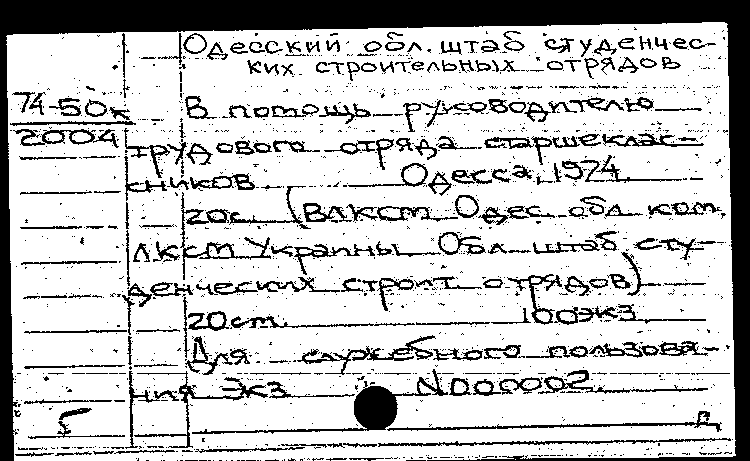 Одесский обл. штаб студенчес-
ких строительных отрядов
74-50к
2004
В помощь руководителю
трудового отряда старшеклас-
сников. Одесса, 1974.
20с. (ВЛКСМ Одес. обл. ком.
ЛКСМ Украины. Обл. штаб сту-
денческих строит. отрядов)
20см. 100экз.
Для служебного пользова-
ния Экз N000002.
Б